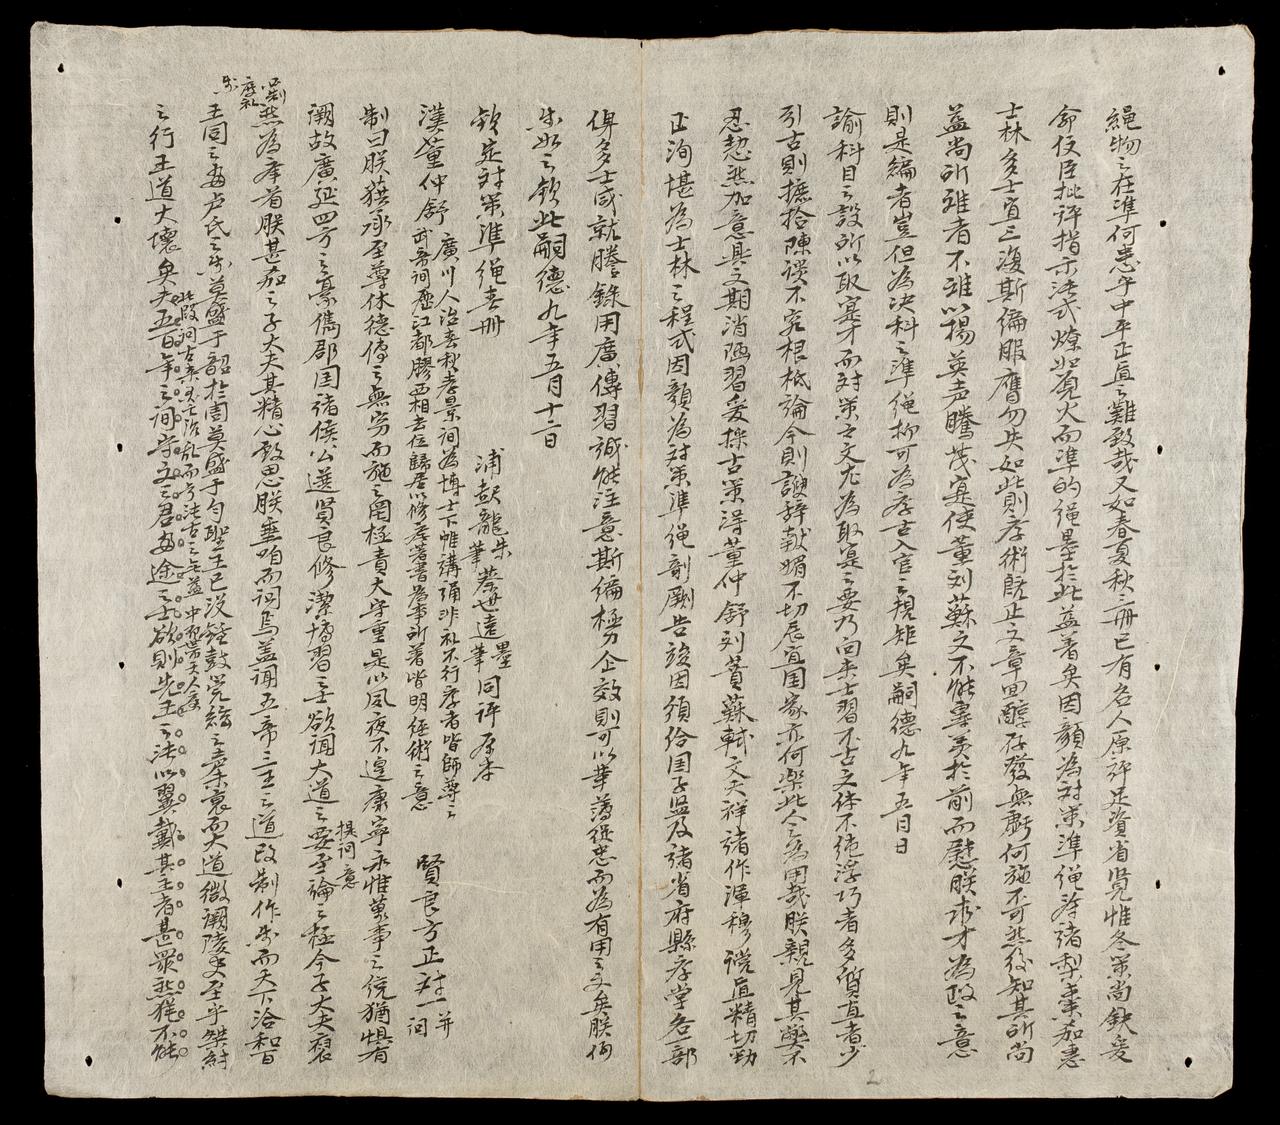 繩物之在準何患乎中平正直之難致哉又如春夏秋三冊已有名人原評足資省覽惟冬策尚缺爰
命侍臣批評指示法式燎如觀火而準的繩墨於此益著矣因顏為對策準繩準諸梨棗加惠
士林多士宜三復斯編服膺勿失如此則孝術既正文章回醇存發無虧何施不可然後知其所尚
益尚所難者不難以揚英声騰茂寔使董刘蘇文不能專美於前而慰朕求才為政之意
則是編者豈但為决科之準繩抑可為孝古入官之規矩矣嗣德九年五月日
諭科目之設所以取寔才而对策之文尤為取寔之要乃向来士習不古文体不純浮巧者多質直者少
引古則摭拾陳談不究根柢論今則諛辞献媚不切辰宜国家亦何樂此人之為用哉朕親見其樂不
忍恝然加意與之期消陋習爰採古策得董仲舒刘蕡蘇軾文天祥諸作渾穆讜直精切勁
正洵堪為士林之程式因顏為对策準繩剞劂告竣因頒給国子监及諸省府縣孝学各一部
俾多士咸就謄錄用廣傳習誠能注意斯編極力企效則可以革薄從忠而為有用之文矣朕何
樂如之欽此嗣德九年五月十二日
欽定对策準繩春冊 浦起龍朱筆蔡世遠墨筆同評原本
漢董仲舒 廣川人治春秋孝景间為博士下帷講誦非礼不行孝者皆師尊之
武帝间歷江都膠西相去位歸居以修孝著書為事所著皆明經術之意 賢良方正对一并问
制曰朕獲承至尊休德傳之無穷而施之罔極責大守重是以夙夜不遑康寧永惟萬事之统猶惧有
阙故廣延四方之豪儁郡国诸侯公選賢良修潔博習之士欲闻大道之要至論之極今子大夫褎
提问意
然為举首朕甚嘉之子大夫其精心致思朕垂听而问焉盖闻五帝三王之道改制作乐而天下洽和百
王同之当虞氏之乐莫盛于韶於周莫盛于勺聖王已没鐘鼓筦絃之声未衰而大道微阙陵夷至乎桀紂
之行王道大壞矣夫五百年之间守文之君当途之士欲則先王之法以翼戴其世者甚眾然猶不能